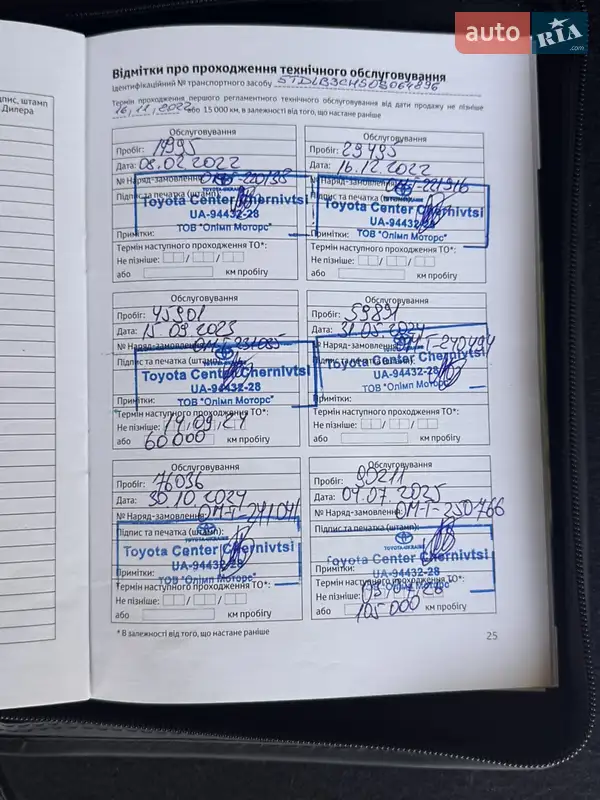 auto RIA.com
дпис, штамп
Дилера
Відмітки про проходження технічного обслуговування
Ідентифікаційний № транспортного засобу 5TDLB3CH50S064896
Термін проходження першого регламентного технічного обслуговування від дати продажу не пізніше
16.11.2022 або 15 000 км, в залежності від того, що настане раніше
Обслуговування
Пробіг: 14995
Дата: 08.02.2022
№ Наряд-замовлення:
Підпис та печатка (штамп):
TOYOTA-UKRAINE
Toyota Center Chernivtsi
UA-94432-28
Примітки: ТОВ "Олімп Моторс"
Термін наступного проходження ТО*:
Не пізніше: / /
або км пробігу
Обслуговування
Пробіг: 29493
Дата: 16.12.2022
№ Наряд-замовлення:
Підпис та печатка (штамп):
Toyota Center Chernivtsi
UA-94432-28
Примітки: ТОВ "Олімп Моторс"
Термін наступного проходження ТО*:
Не пізніше: / /
або км пробігу
Обслуговування
Пробіг: 45901
Дата: 15.09.2023
№ Наряд-замовлення: ОМ-Т-231085
Підпис та печатка (штамп):
Toyota Center Chernivtsi
UA-94432-28
Примітки: ТОВ "Олімп Моторс"
Термін наступного проходження ТО*:
Не пізніше: 14.09.24
або 60000 км пробігу
Обслуговування
Пробіг: 59891
Дата: 31.05.2024
№ Наряд-замовлення: ОМ-Т-240494
Підпис та печатка (штамп):
Toyota Center Chernivtsi
UA-94432-28
ТОВ "Олімп Моторс"
Примітки:
Термін наступного проходження ТО*:
Не пізніше: / /
або км пробігу
Обслуговування
Пробіг: 76036
Дата: 30.10.2024
№ Наряд-замовлення: ОМ-Т-241041
Підпис та печатка (штамп):
TOYOTA-UKRAINE
Toyota Center Chernivtsi
UA-94432-28
Примітки: ТОВ "Олімп Моторс"
Термін наступного проходження ТО*:
Не пізніше: / /
або км пробігу
Обслуговування
Пробіг: 90211
Дата: 04.07.2025
№ Наряд-замовлення: ОМ-Т-250766
Підпис та печатка (штамп):
TOYOTA-UKRAINE
Toyota Center Chernivtsi
UA-94432-28
Примітки: ТОВ "Олімп Моторс"
Термін наступного проходження ТО*:
Не пізніше:
або 105000 км пробігу
* В залежності від того, що настане раніше
25